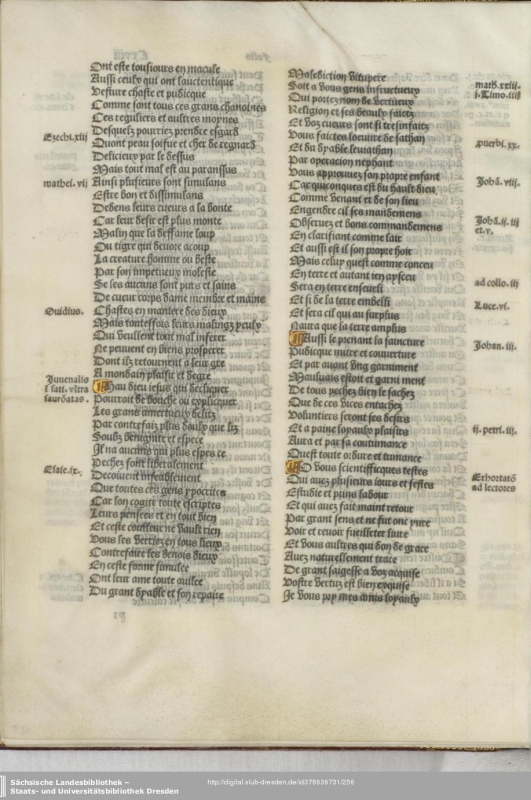 Ont este tousiours en macule
Aussi ceulx qui ont lauctentique
Vesture chaste et pudicque
Comme sont tous ces grans chanoines
Ces reguliers et aultres moynes
Desquelz pourriez prendre esgard
Ezechi. xiii
Quont peau soifue et cher de regnard
Delicieux par le dessus
Mais tout mal est au parassus
mathei. vii
Ainsi plusieurs sont simulans
Estre bon et dissimulans
Dedens leurs cueurs a la bonte
Car leur desir est plus monte
Malin que la deffame loup
Ou tigre qui deuore acoup
La creature homme ou beste
Par son impetueux moleste
Se les aucuns sont purs et sains
De cueur corps dame membre et mains
Ouidius.
Chastes en maniere des dieux
Mais toutesfois leurs malings peulx
Qui veullent tout mal inferer
Ne peuent en biens prosperer
Dont ilz retournent a leur gre
A mondain plaisir et degre
Iuuenalis
i sati. vltra
sauromatas.
Han dieu iesus qui decliquer
Pourroit de bouche ou expliquer
Les grans
Par contrefaiz plus doulx que liz
Soubz benignite et espece
Il na aucuns qui plus espes ce
Pechez sont liberalement
Esaie. ix.
Decoiuent
Que toutes ces gens ypocrites
Car lon cognit toute escriptes
Leurs pensees et en tout bien
Et ceste couleur ne vault rien
Vous les verriez en tous lieux
Contrefaire les benois dieux
En ceste forme simulee
Ont leur ame toute auilee
Du grant dyable et son repaire
Malediction vitupere
math. xxiii.
Soit a vous gens infructueux
i. Timo. iiii
Qui portez nom de vertueux
Religion et ses beaulx faictz
Et voz cueurs sont si tresinfaitz
Vous faictes loeuure de sathan
puerbi. xx.
Et du dyable leuiathan
Par operacion nephant
Vous approuuez son propre enfant
Johā. viii.
Car quiconques est du hault dieu
Comme venant et de son lieu
Engendre cil ses mandemens
Johā. ii. iii
et. v.
Obseruez et bons commandemens
En clarifiant comme lair
Et aussi est il son propre hoir
Mais celuy quest comme conceu
En terre et autant
ad collo. iii
Sera en terre enseueli
Et si de la terre embelli
Luce. vi.
Et sera cil qui au surplus
Naura que la terre amplus
Johan. iii.
Aussi se prenant la saincture
Pudicque mitre et couuerture
Et par auant vng garniment
Mauluais estoit et garni ment
De tous pechez bien le sachez
Que de ces vices entachez
Voluntiers seront ses desirs
ii. petri. iii.
Et a paine loyaulx plaisirs
Aura et par sa coustumance
Quest toute ordure et
Exhortatō
ad lectores
O vous scientifficques testes
Qui auez plusieurs iours et festes
Estudie et prins labour
Et qui auez fait maint retour
Par grant sens et ne fut onc yure
Voir et reuoir fueilleter liure
Et vous aultres qui don de grace
Auez naturellement trace
De grant saigesse a voz acquise
Vostre vertuz est bien exquise
Je vous pry mes amis loyaulx
Sächsische Landesbibliothek –
Staats- und Universitätsbibliothek Dresden
http://digital.slub-dresden.de/id378636731/256